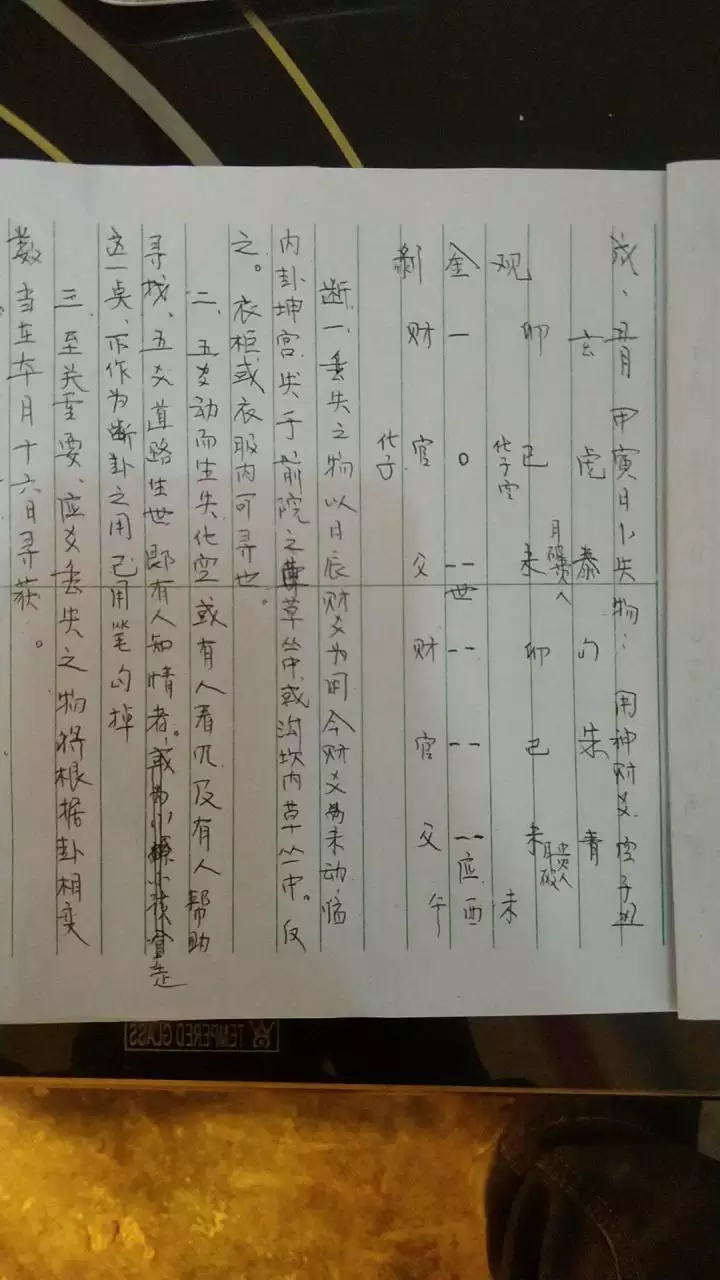 戌、丑月 甲寅日卜失物: 用神财爻 空子丑
玄 虎 泰 勾 朱 青
月破贵人 月破贵人
卯 巳 未 卯 巳 未
化子空
观 未
金 一 0 -- 世 -- -- -- 应 酉
财 官 父 财 官 父 午
剥 化子
断: 一、丢失之物以日辰财爻为用今财爻为未动,临
内卦坤宫,失于前院之草丛中或沟坎内草丛中。反
之。衣柜或衣服内可寻也。
二、五爻动而生失化空 或有人看见及有人帮助
寻找、五爻道路生世 即有人知情者。
这一点、不作为断卦之用 已用笔勾掉
三、至关重要、应爻丢失之物将根据卦相变
数 当在本月十六日寻获。
TEMPERED GLASS